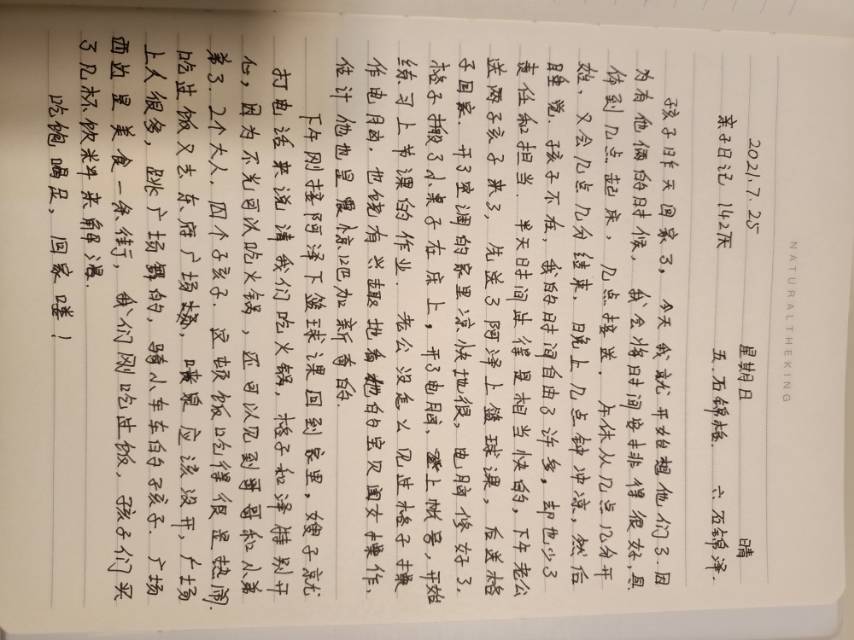 NATURALTHEKING
2021.7.25 星期日 晴
亲子日记 142天 五.石锦格. 六.石锦泽.
孩子昨天回家了,今天我就开始想他们了.因
为有他俩的时候,我会将时间安排得很好,具
体到几点起床,几点接送.午休从几点几分开
始,又会几点几分结束.晚上几点钟冲凉,然后
睡觉.孩子不在,我的时间自由了许多,却也少了
责任和担当.半天时间过得是相当快的,下午老公
送两孩子来了,先送了阿泽上篮球课,后送格
子回家.开了空调的家里凉快地很,电脑修好了.
格子搬了小桌子在床上,开了电脑、登上帐号,开始
练习上节课的作业.老公没怎么见过格子操
作电脑,也饶有兴趣地看她的宝贝闺女操作,
估计他也是震惊吧加新奇的.
下午刚接阿泽下篮球课回到家里,嫂子就
打电话来说请我们吃火锅,格子和泽特别开
心,因为不光可以吃火锅,还可以见到哥哥和小弟
弟了.2个大人.四个子孩子.这顿饭吃得很是热闹.
吃过饭又去东府广场,喷泉应该没开,广场
上人很多,跳广场舞的,骑小车车的子孩子.广场
西边是美食一条街,我们刚吃过饭,孩子们买
了几杯饮料来解渴.
吃饱喝足,回家喽!